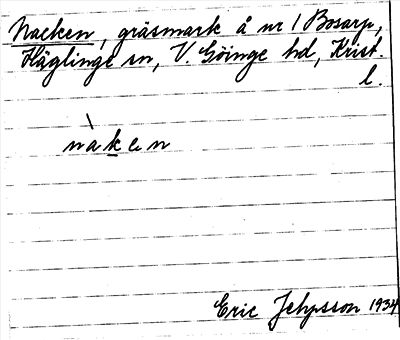 Nacken, gräsmark å nr 1 Bosarp,
Häglinge sn, V. Göinge hd, Krist.
l.
nàken
Eric Jelpsson 1934